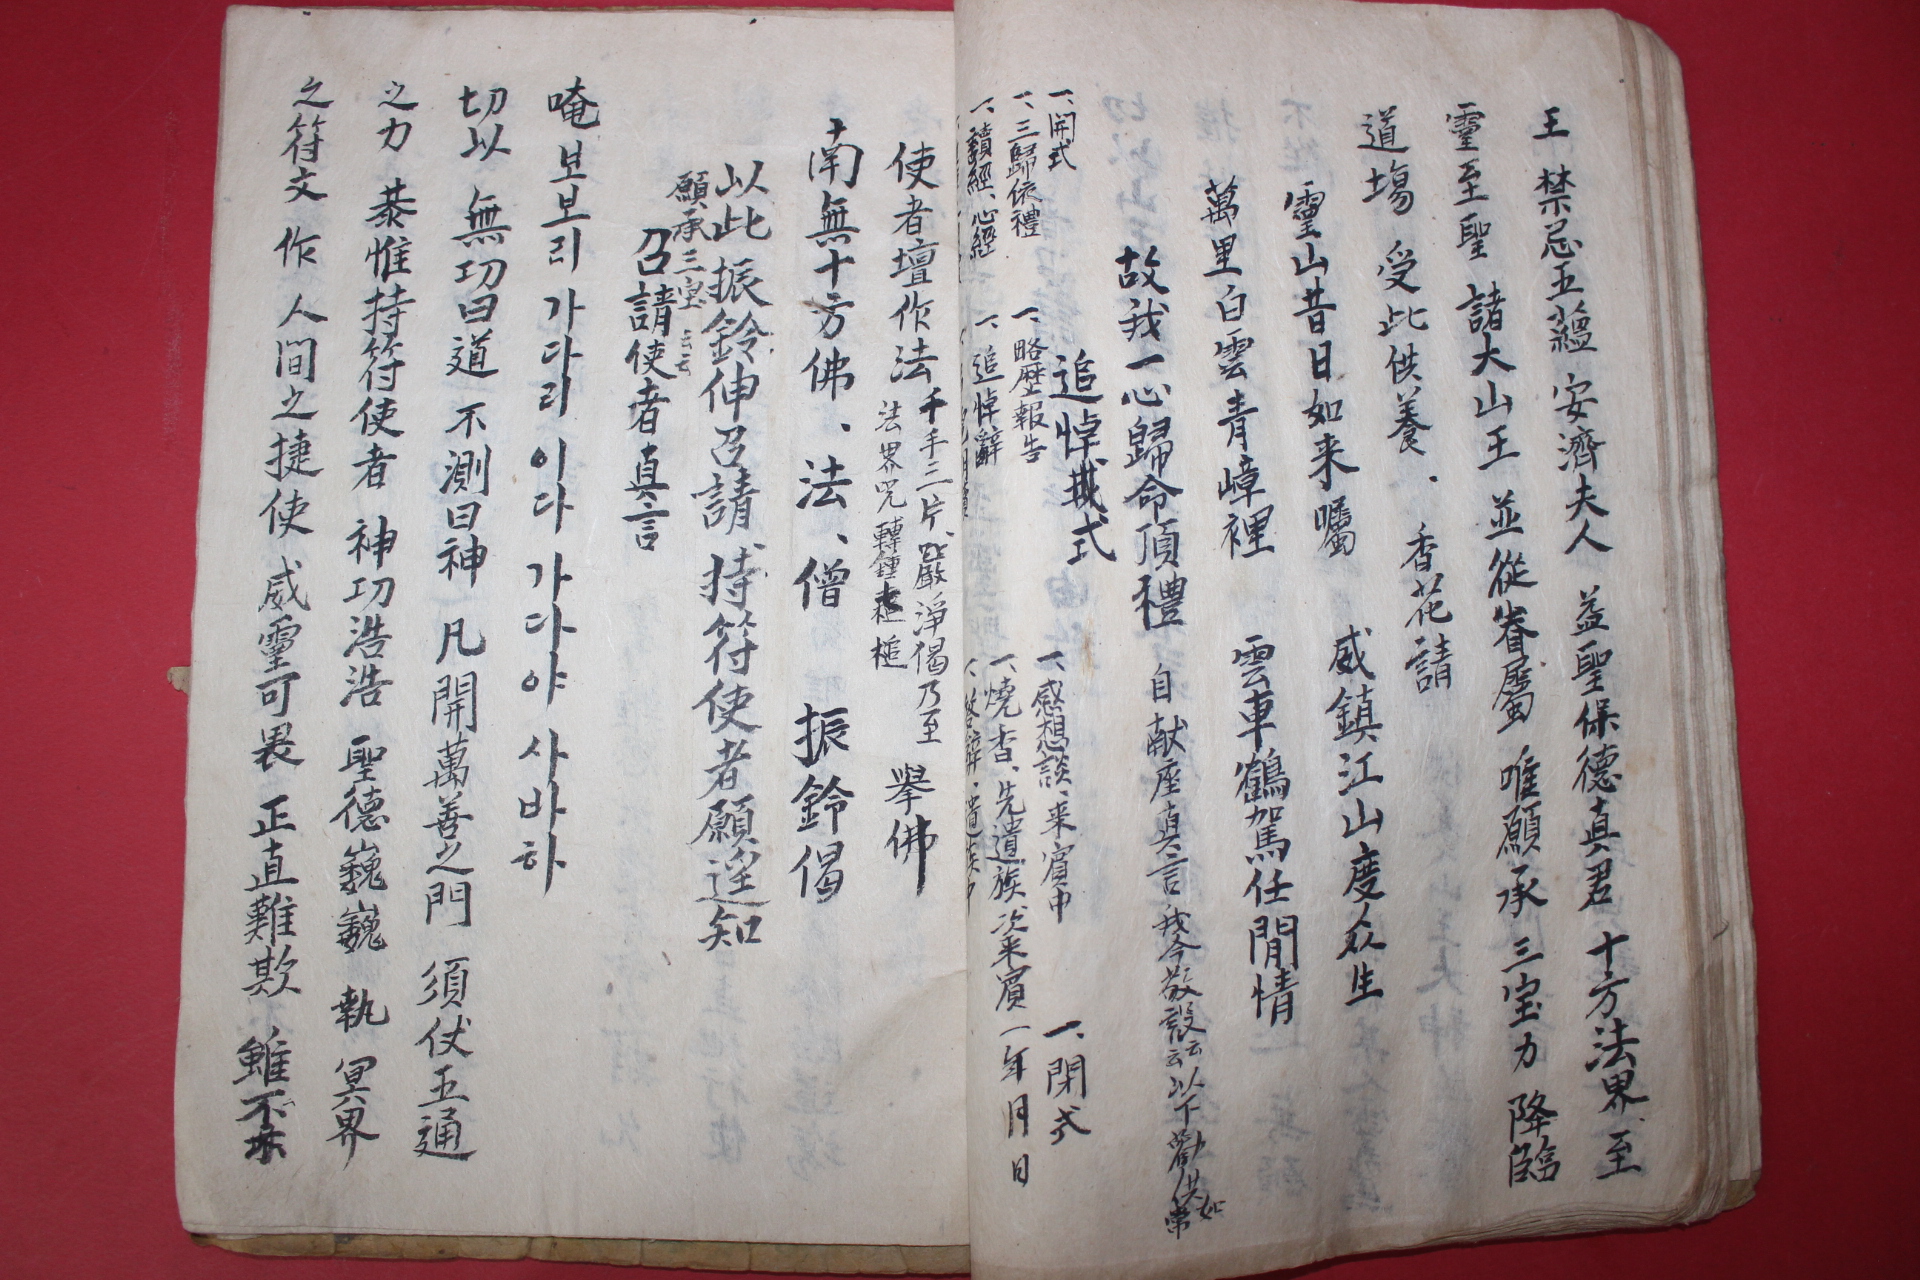 王 禁忌五蘊 安濟夫人 益聖保德真君 十方法界 至
靈至聖 諸大山王 並從眷屬 唯願承 三宝力 降臨
道場 受此供養 . 香花請
靈山昔日如来囑 威鎮江山度众生
萬里白雲青嶂裡 雲車鶴駕任閒情
故我一心歸命頂禮 自献座真言 我今敬設云云 以下勸供如常
追悼式
一、開式
一、三歸依禮
一、讀經、心經
一、略歷報告
一、追悼辭
一、感想談、来賓中
一、燒香、先遺族、次来賓
一、閉式
一年月日
使者壇作法 千手二片、嚴淨偈乃至 擧佛
法界咒 轉鍾
南無十方佛、法、僧 振鈴偈
以此振鈴伸召請 持符使者願遥知
願承三宝 云云
召請使者真言
唵 보보리 가다리 이다 가다야 사바하
切以 無功曰道 不測曰神 凡開萬善之門 須仗五通
之力 恭惟持符使者 神功浩浩 聖德巍巍 執 冥界
之符文 作 人間之捷使 威靈可畏 正直難欺 雖不